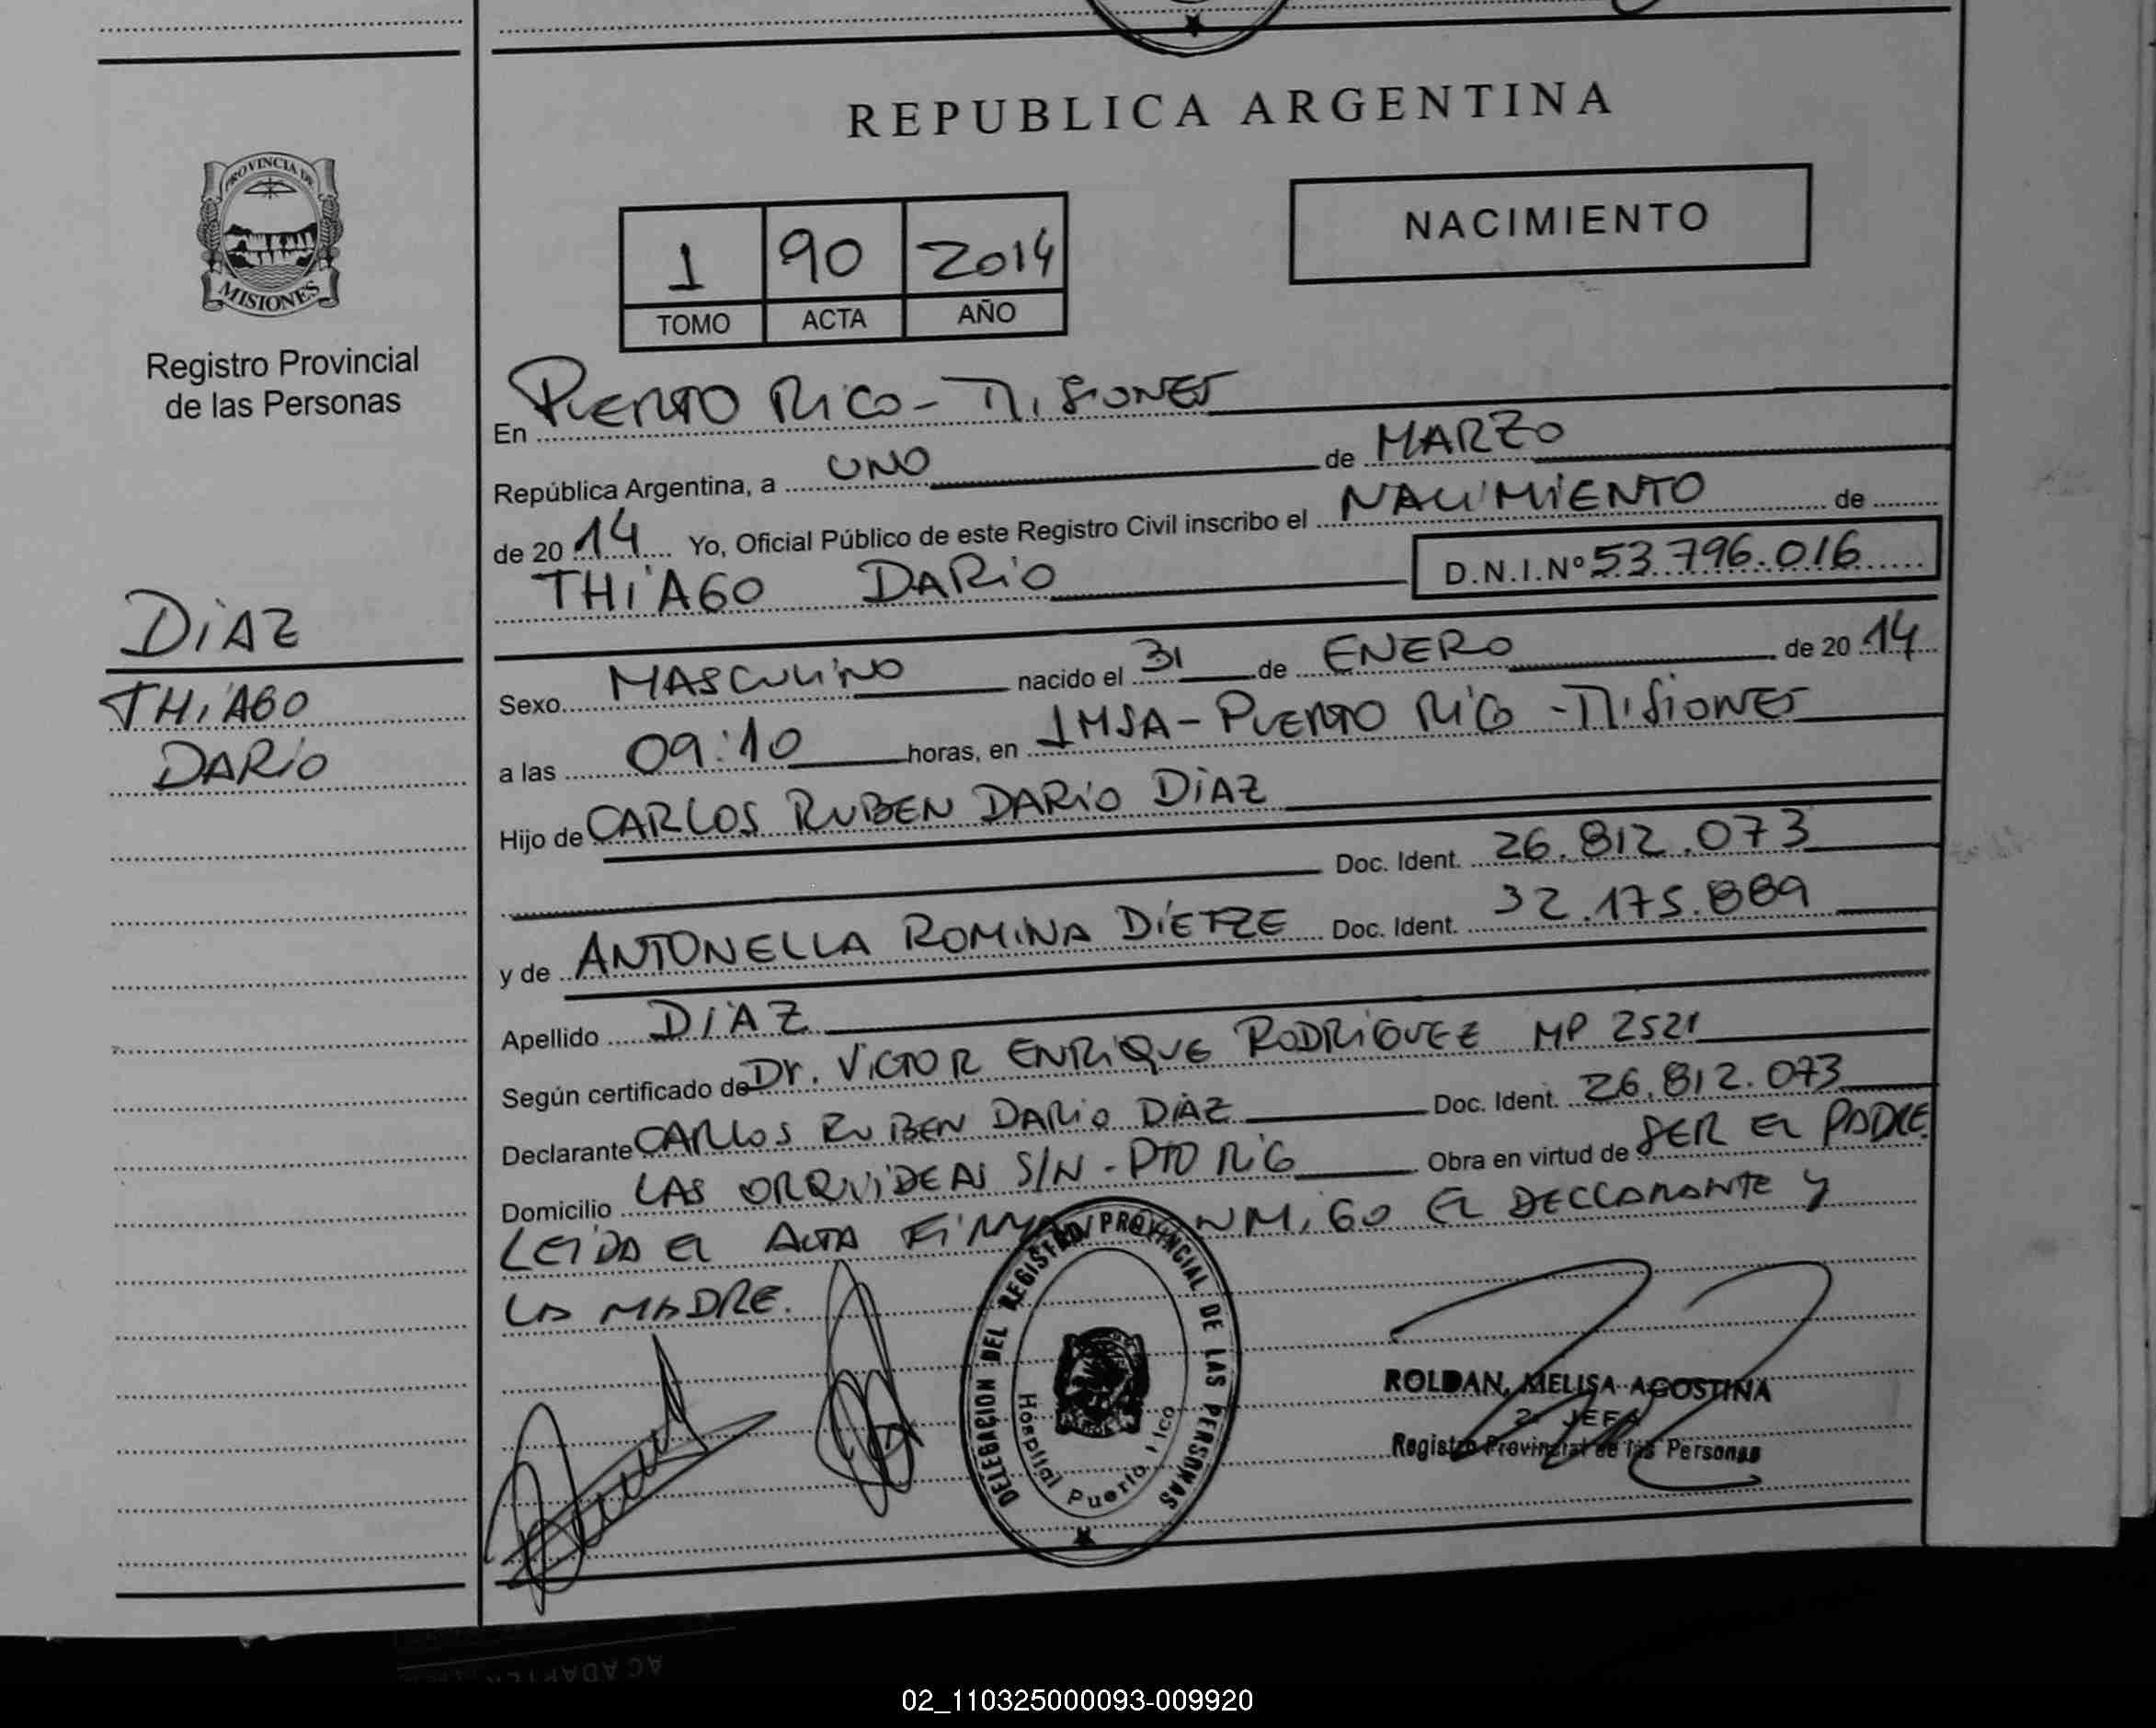 REPUBLICA ARGENTINA
PROVINCIA DE
MISIONES
Registro Provincial
de las Personas
NACIMIENTO
1 90 2014
TOMO ACTA AÑO
En PUERTO RICO - MISIONES
República Argentina, a UNO de MARZO
de 2014 Yo, Oficial Público de este Registro Civil inscribo el NACIMIENTO de
THIAGO DARIO D.N.I.Nº 53.796.016
DIAZ
THIAGO
DARIO
Sexo MASCULINO nacido el 31 de ENERO de 2014
a las 09:10 horas, en IMSA - PUERTO RICO - MISIONES
Hijo de CARLOS RUBEN DARIO DIAZ
Doc. Ident. 26.812.073
y de ANTONELLA ROMINA DIETZE Doc. Ident. 32.175.889
Apellido DIAZ
Según certificado de Dr. VICTOR ENRIQUE RODRIGUEZ MP 2521
Declarante CARLOS RUBEN DARIO DIAZ Doc. Ident. 26.812.073
Domicilio LAS ORQUIDEAS S/N - PTO RICO Obra en virtud de SER EL PADRE
LEIDA EL ACTA FIRMAN CONMIGO EL DECLARANTE Y
LA MADRE.
DELEGACION DEL REGISTRO PROVINCIAL DE LAS PERSONAS
Hospital Puerto Rico
ROLDAN, MELISA AGOSTINA
2º JEFA
Registro Provincial de las Personas
02_110325000093-009920